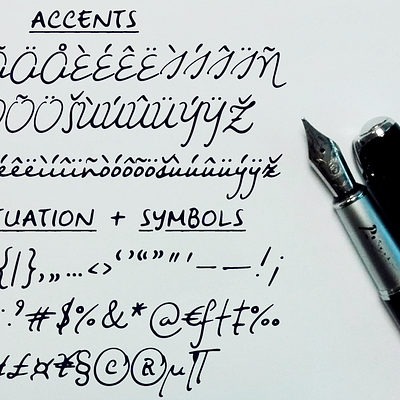 ACCENTS
ÃÄÅÈÉÊËÌÍÎÏÑ
ÕÖŠÙÚÛÜÝŸŽ
éêëìíîïñòóôõöšùúûüýÿž
TUATION + SYMBOLS
{|},„…<>‘’“”"'–—!¡
#$%&*@€ƒ†‡‰
£¤¥§©®µ¶